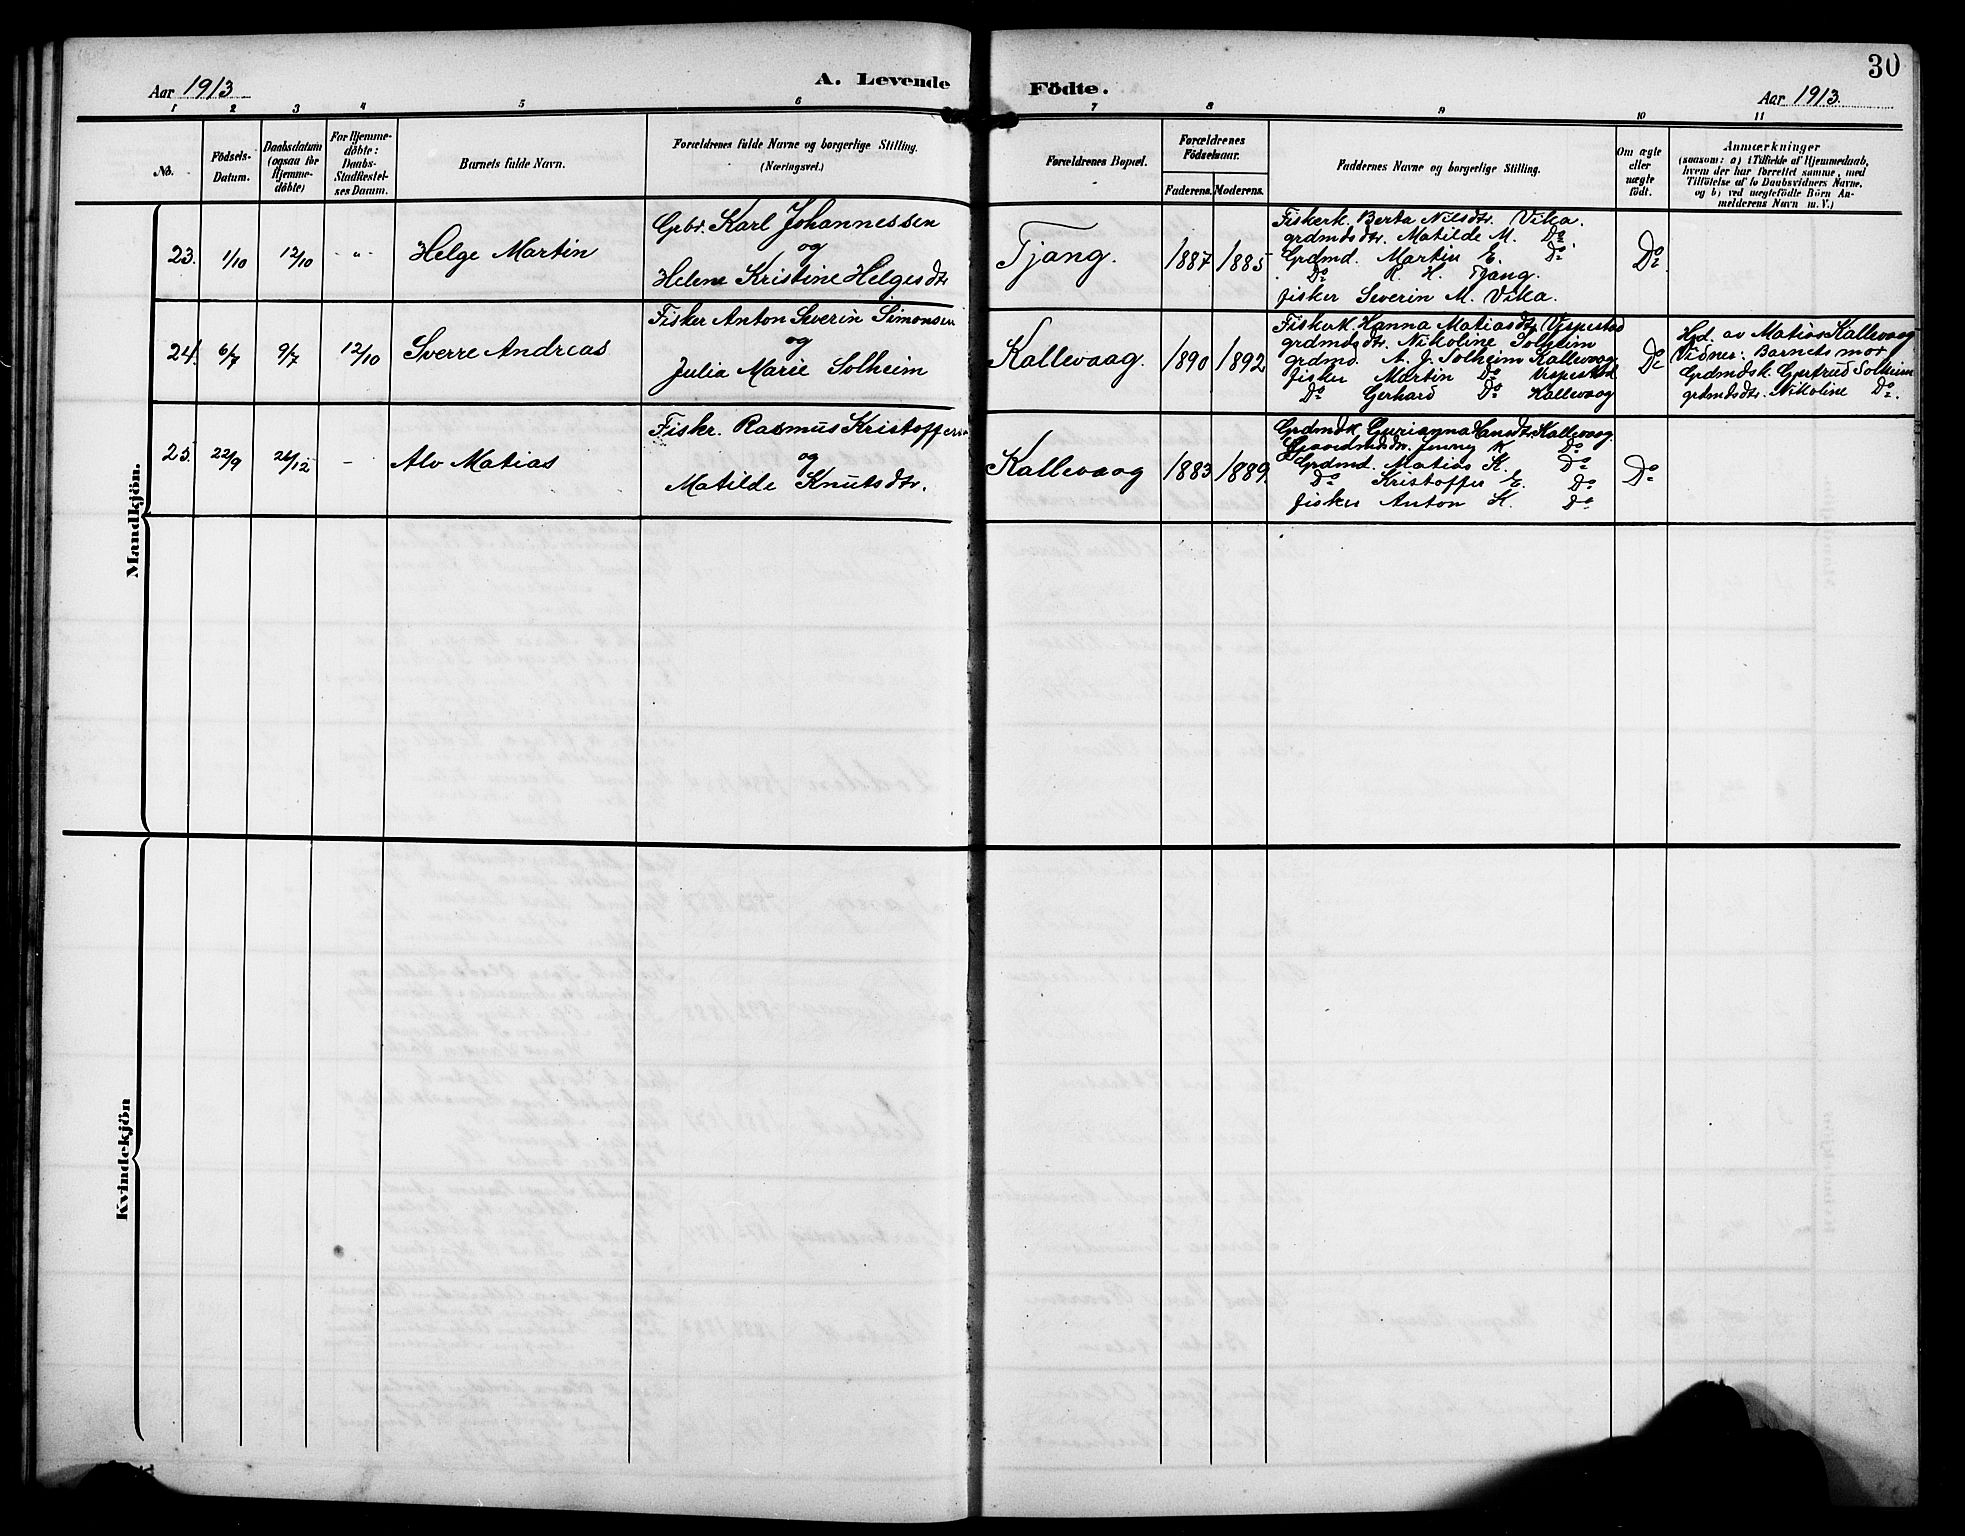 30
Aar 1913
A. Levende
Födte.
Aar 1913.
1 2 3 4 5 6 7 8 9 10 11
No.
Födsels-
Datum.
Daabsdatum
(ogsaa for
Hjemme-
döbte)
For Hjemme-
döbte:
Daabs-
Stadfæstel-
ses Datum.
Barnets fulde Navn.
Forældrenes fulde Navne og borgerlige Stilling.
(Næringsvei.)
Forældrenes Bopæl.
Forældrenes
Födselsaar.
Faderens. Moderens.
Faddernes Navne og borgerlige Stilling.
Om ægte
eller
uægte
födt.
Anmærkninger
(saasom: a) i Tilfælde af Hjemmedaab,
hvem der har forrettet samme, med
Tilföielse af to Daabsvidners Navne,
og b) ved uægtefödte Börn An-
melderens Navn m. V.)
Mandkjön.
23. 1/10 12/10 -"- Helge Martin
Gbr. Karl Johannessen
og
Helene Kristine Helgesdtr
Tjang. 1887 1885
Fiskerk. Berta Nilsdtr. Vika.
grdmdsdtr. Matilde M. Do
Grdmd. Martin E. Do
Do R. H. Tjang.
fisker Severin M. Vika.
Do
24. 6/7 9/7 12/10 Sverre Andreas
Fisker Anton Severin Simonsen
og
Julia Marie Solheim
Kallevaag. 1890 1892
Fiskerk. Hanna Matiasdtr. Vespestad
grdmdsdtr. Nikoline Solheim
grdmd. A. J. Solheim Kallevaag
fisker Martin Do Vespestad
Do Gerhard Do Kallevaag
Do
Hjd. av Matias Kallevaag
Vidner: Barnets mor
Grdmdsk. Gjertrud Solheim
grdmdsdtr. Nikoline Do.
25. 22/9 26/12 - Alv Matias
Fiskr. Rasmus Kristoffersen
og
Matilde Knutsdtr.
Kallevaag 1883 1889.
Grdmdk Gurianna Hansdtr. Kallevaag.
Jenny K. Do
Grdmd. Matias K. Do
Do Kristoffer E. Do
fisker Anton K. Do
Do
Kvindekjön